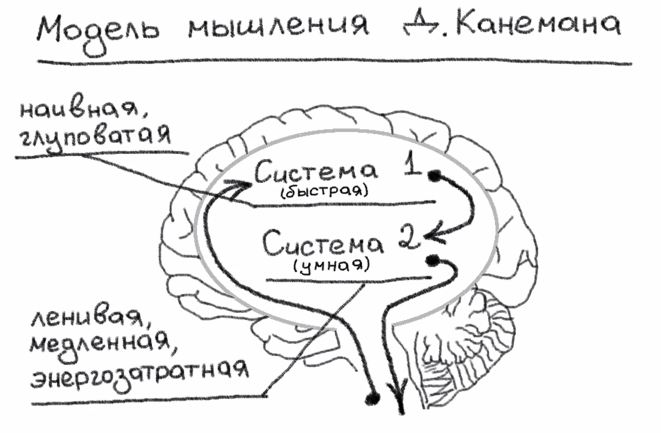 Модель мышления Д. Канемана
наивная,
глуповатая
Система 1
(быстрая)
Система 2
(умная)
ленивая,
медленная,
энергозатратная